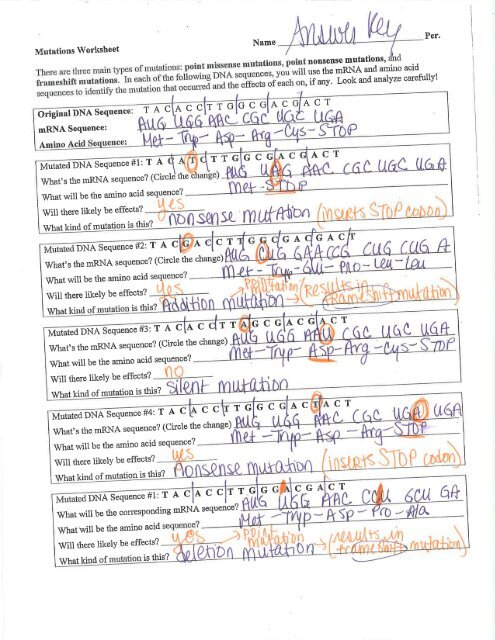 Name Answer Key Per.
Mutations Worksheet
There are three main types of mutations: point missense mutations, point nonsense mutations, and
frameshift mutations. In each of the following DNA sequences, you will use the mRNA and amino acid
sequences to identify the mutation that occurred and the effects of each on, if any. Look and analyze carefully!
Original DNA Sequence: T A C A C C T T G G C G A C G A C T
mRNA Sequence: AUG UGG AAC CGC UGC UGA
Amino Acid Sequence: Met - Trp - Asp - Arg - Cys - STOP
Mutated DNA Sequence #1: T A C A T C T T G G C G A C G A C T
What's the mRNA sequence? (Circle the change) AUG UAG AAC CGC UGC UGA
What will be the amino acid sequence? Met - STOP
Will there likely be effects? yes
What kind of mutation is this? nonsense mutation (inserts STOP codon)
Mutated DNA Sequence #2: T A C G A C C T T G G C G A C G A C T
What's the mRNA sequence? (Circle the change) AUG CUG GAA CCG CUG CUG A
What will be the amino acid sequence? Met - Tryp - Glu - Pro - Leu - Leu
Will there likely be effects? yes
What kind of mutation is this? Addition mutation → (results in a frameshift mutation)
Mutated DNA Sequence #3: T A C A C C T T A G C G A C G A C T
What's the mRNA sequence? (Circle the change) AUG UGG AAU CGC UGC UGA
What will be the amino acid sequence? Met - Tryp - Asp - Arg - Cys - STOP
Will there likely be effects? no
What kind of mutation is this? Silent mutation
Mutated DNA Sequence #4: T A C A C C T T G G C G A C T A C T
What's the mRNA sequence? (Circle the change) AUG UGG AAC CGC UGA UGA
What will be the amino acid sequence? Met - Tryp - Asp - Arg - STOP
Will there likely be effects? yes
What kind of mutation is this? Nonsense mutation (inserts STOP codon)
Mutated DNA Sequence #1: T A C A C C T T G G G A C G A C T
What will be the corresponding mRNA sequence? AUG UGG AAC CCU GCU GA
What will be the amino acid sequence? Met - Tryp - Asp - Pro - Ala
Will there likely be effects? yes → point mutation
What kind of mutation is this? deletion mutation → (results in frameshift mutation)